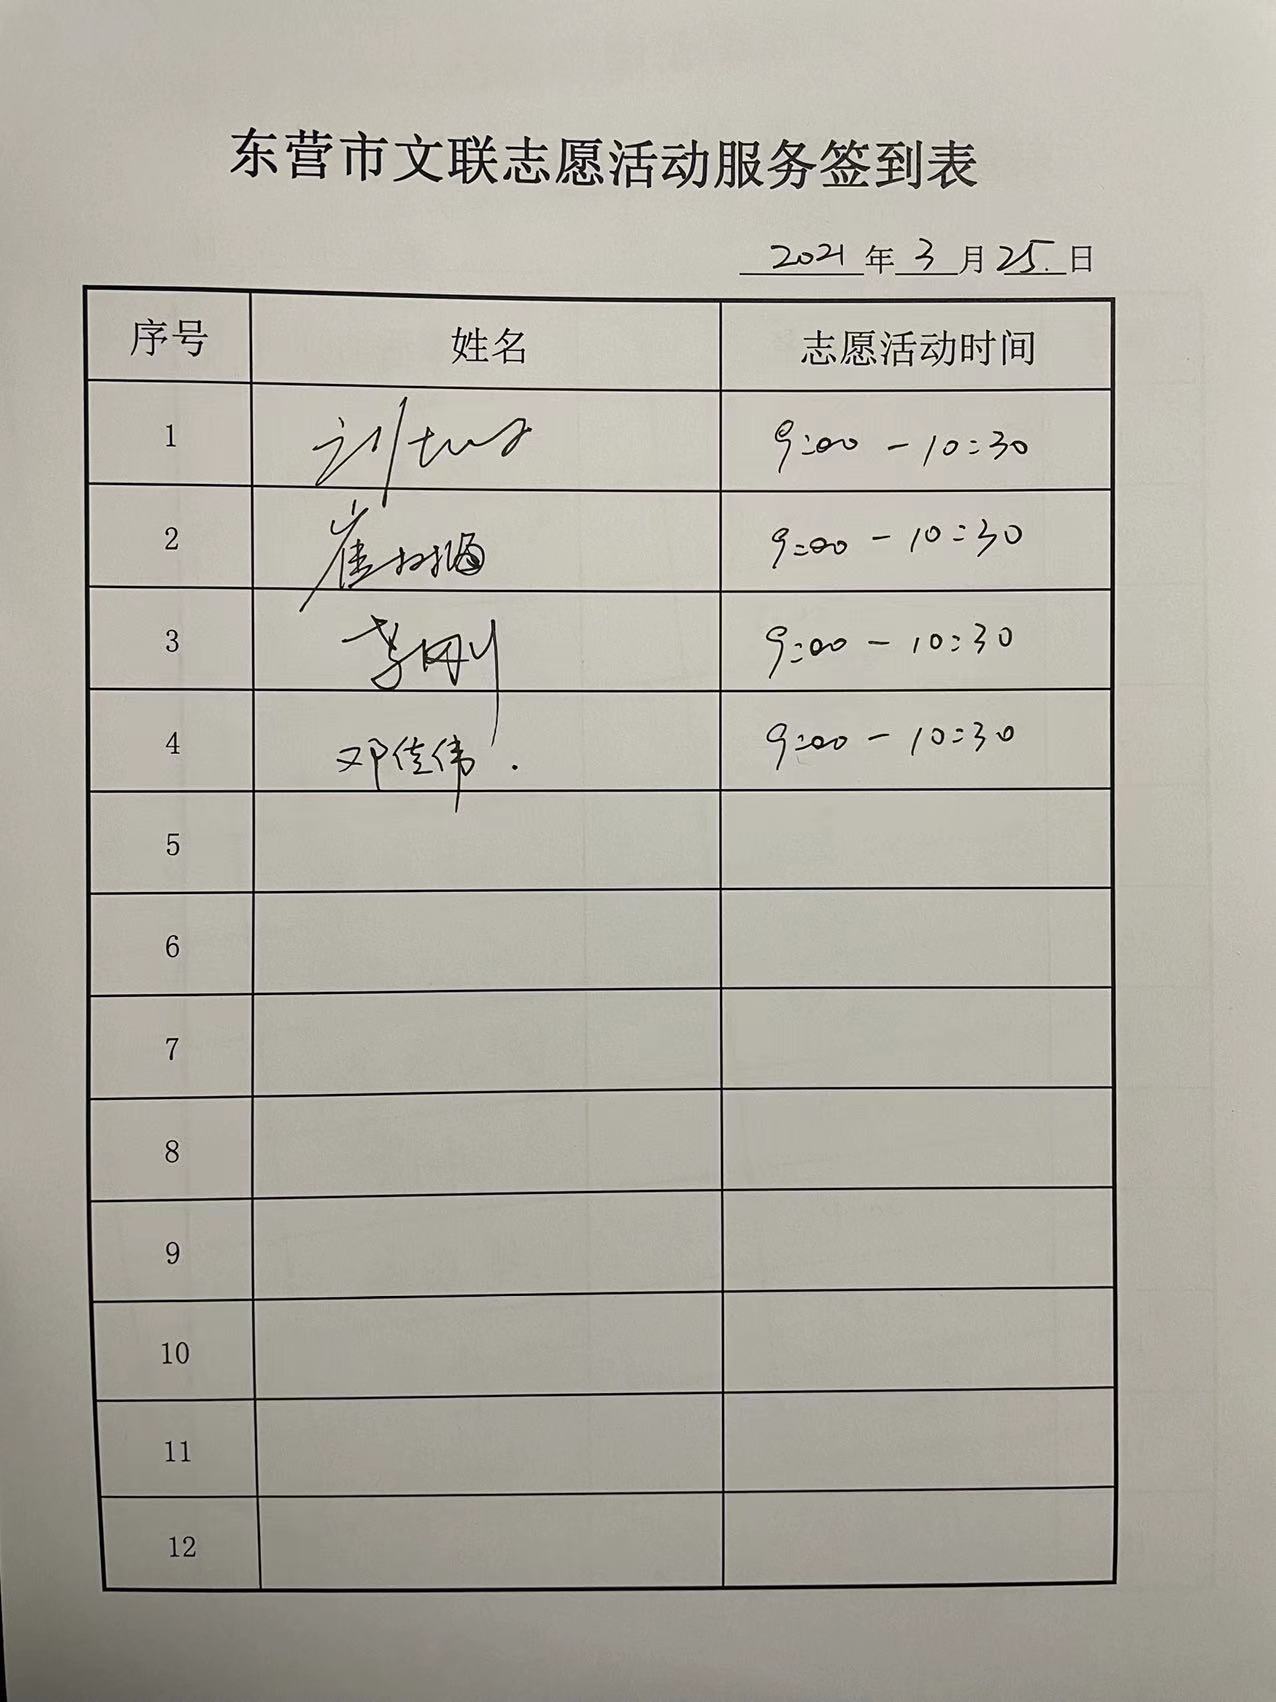 东营市文联志愿活动服务签到表
2021年3月25日
序号 姓名 志愿活动时间
1 刘 9:00-10:30
2 崔 9:00-10:30
3 李刚 9:00-10:30
4 邓佳伟. 9:00-10:30
5
6
7
8
9
10
11
12